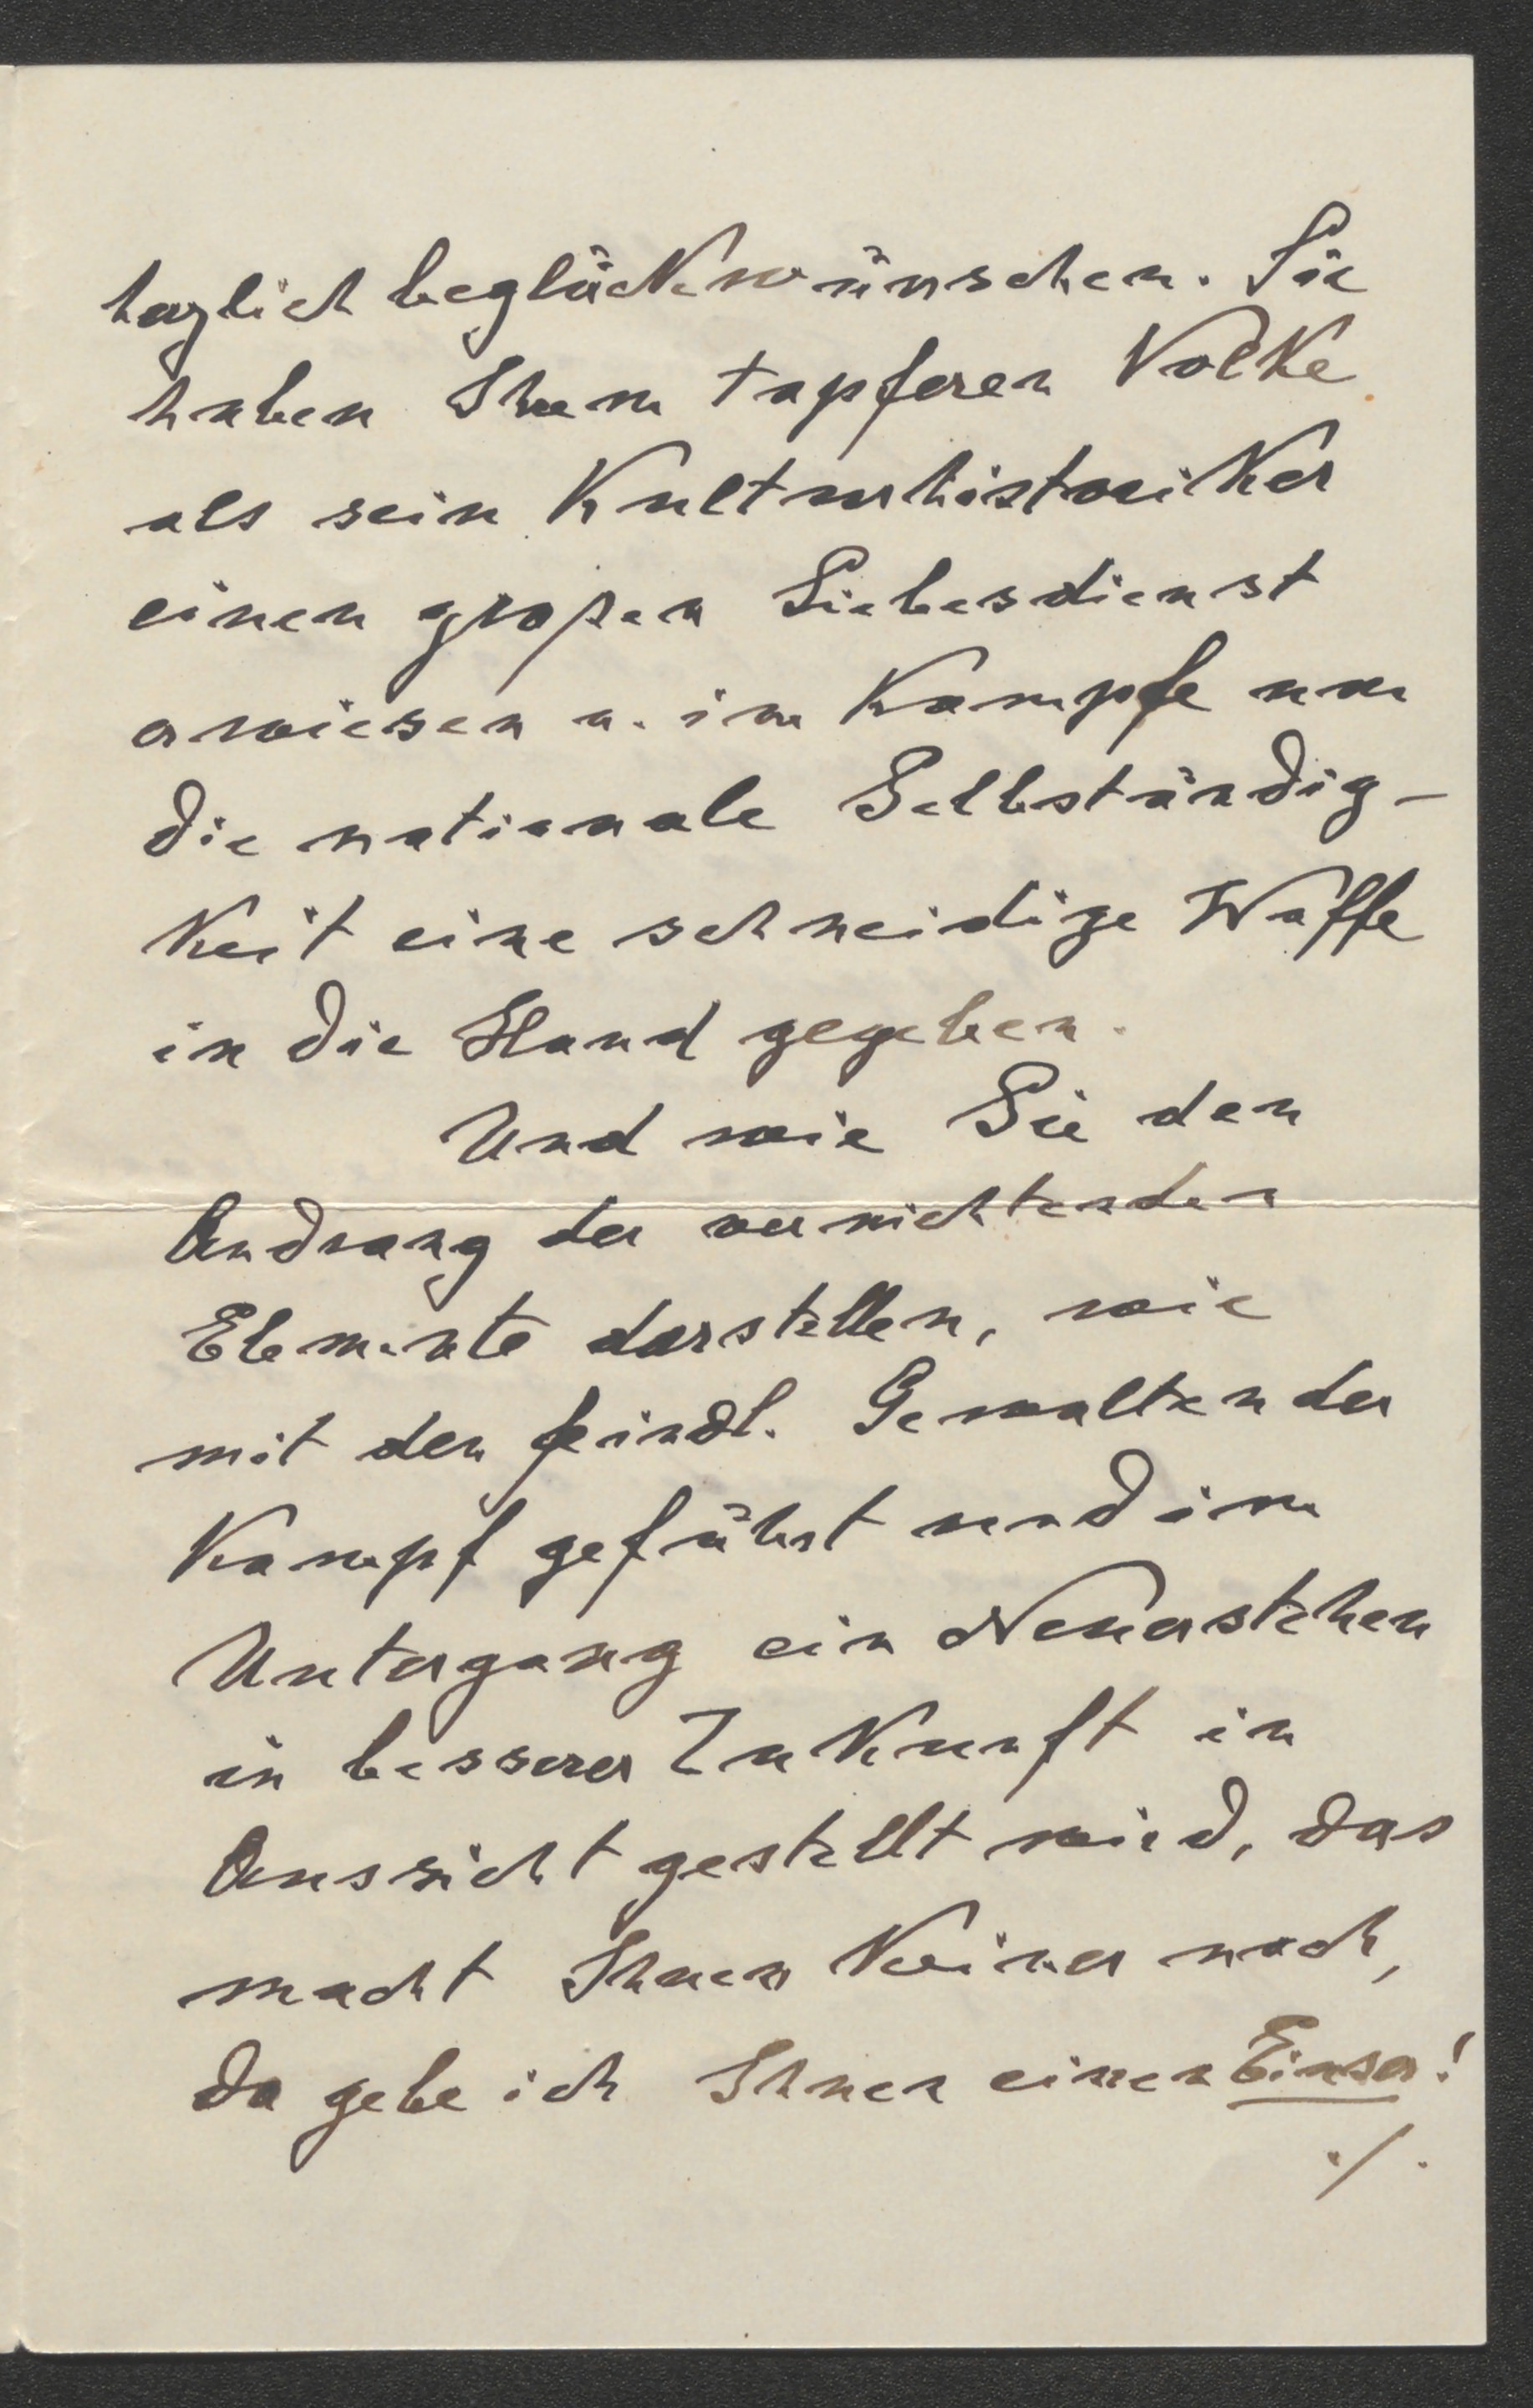 herzlich beglückwünschen. Sie
haben Ihrem tapferen Volke
als sein Kulturhistoriker
einen großen Liebesdienst
erwiesen u. im Kampfe um
die nationale Selbständig-
keit eine schneidige Waffe
in die Hand gegeben.
Und wie Sie den
Andrang der vernichtenden
Elemente darstellen, wie
mit den feindl. Gewalten der
Kampf geführt und im
Untergang ein Neuerstehen
in besserer Zukunft in
Aussicht gestellt wird, das
macht Ihnen Keiner nach,
da gebe ich Ihnen einen Einser!
./.